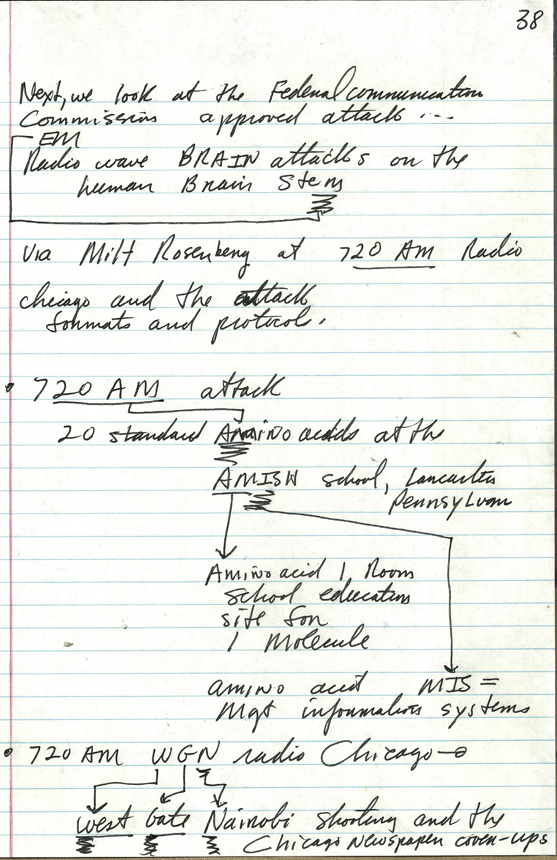 38
Next, we look at the Federal communication
Commission approved attack ...
EM
Radio wave BRAIN attacks on the
human Brain Stem
via Milt Rosenberg at 720 AM Radio
chicago and the attack
formats and protocol.
• 720 AM attack
20 standard Amino acids at the
AMISH school, Lancaster
Pennsylvan
Amino acid 1 Room
school education
site for
1 Molecule
amino acid MIS =
Mgt information systems
• 720 AM WGN radio Chicago →
west Gate Nairobi shooting and the
Chicago Newspaper cover-ups